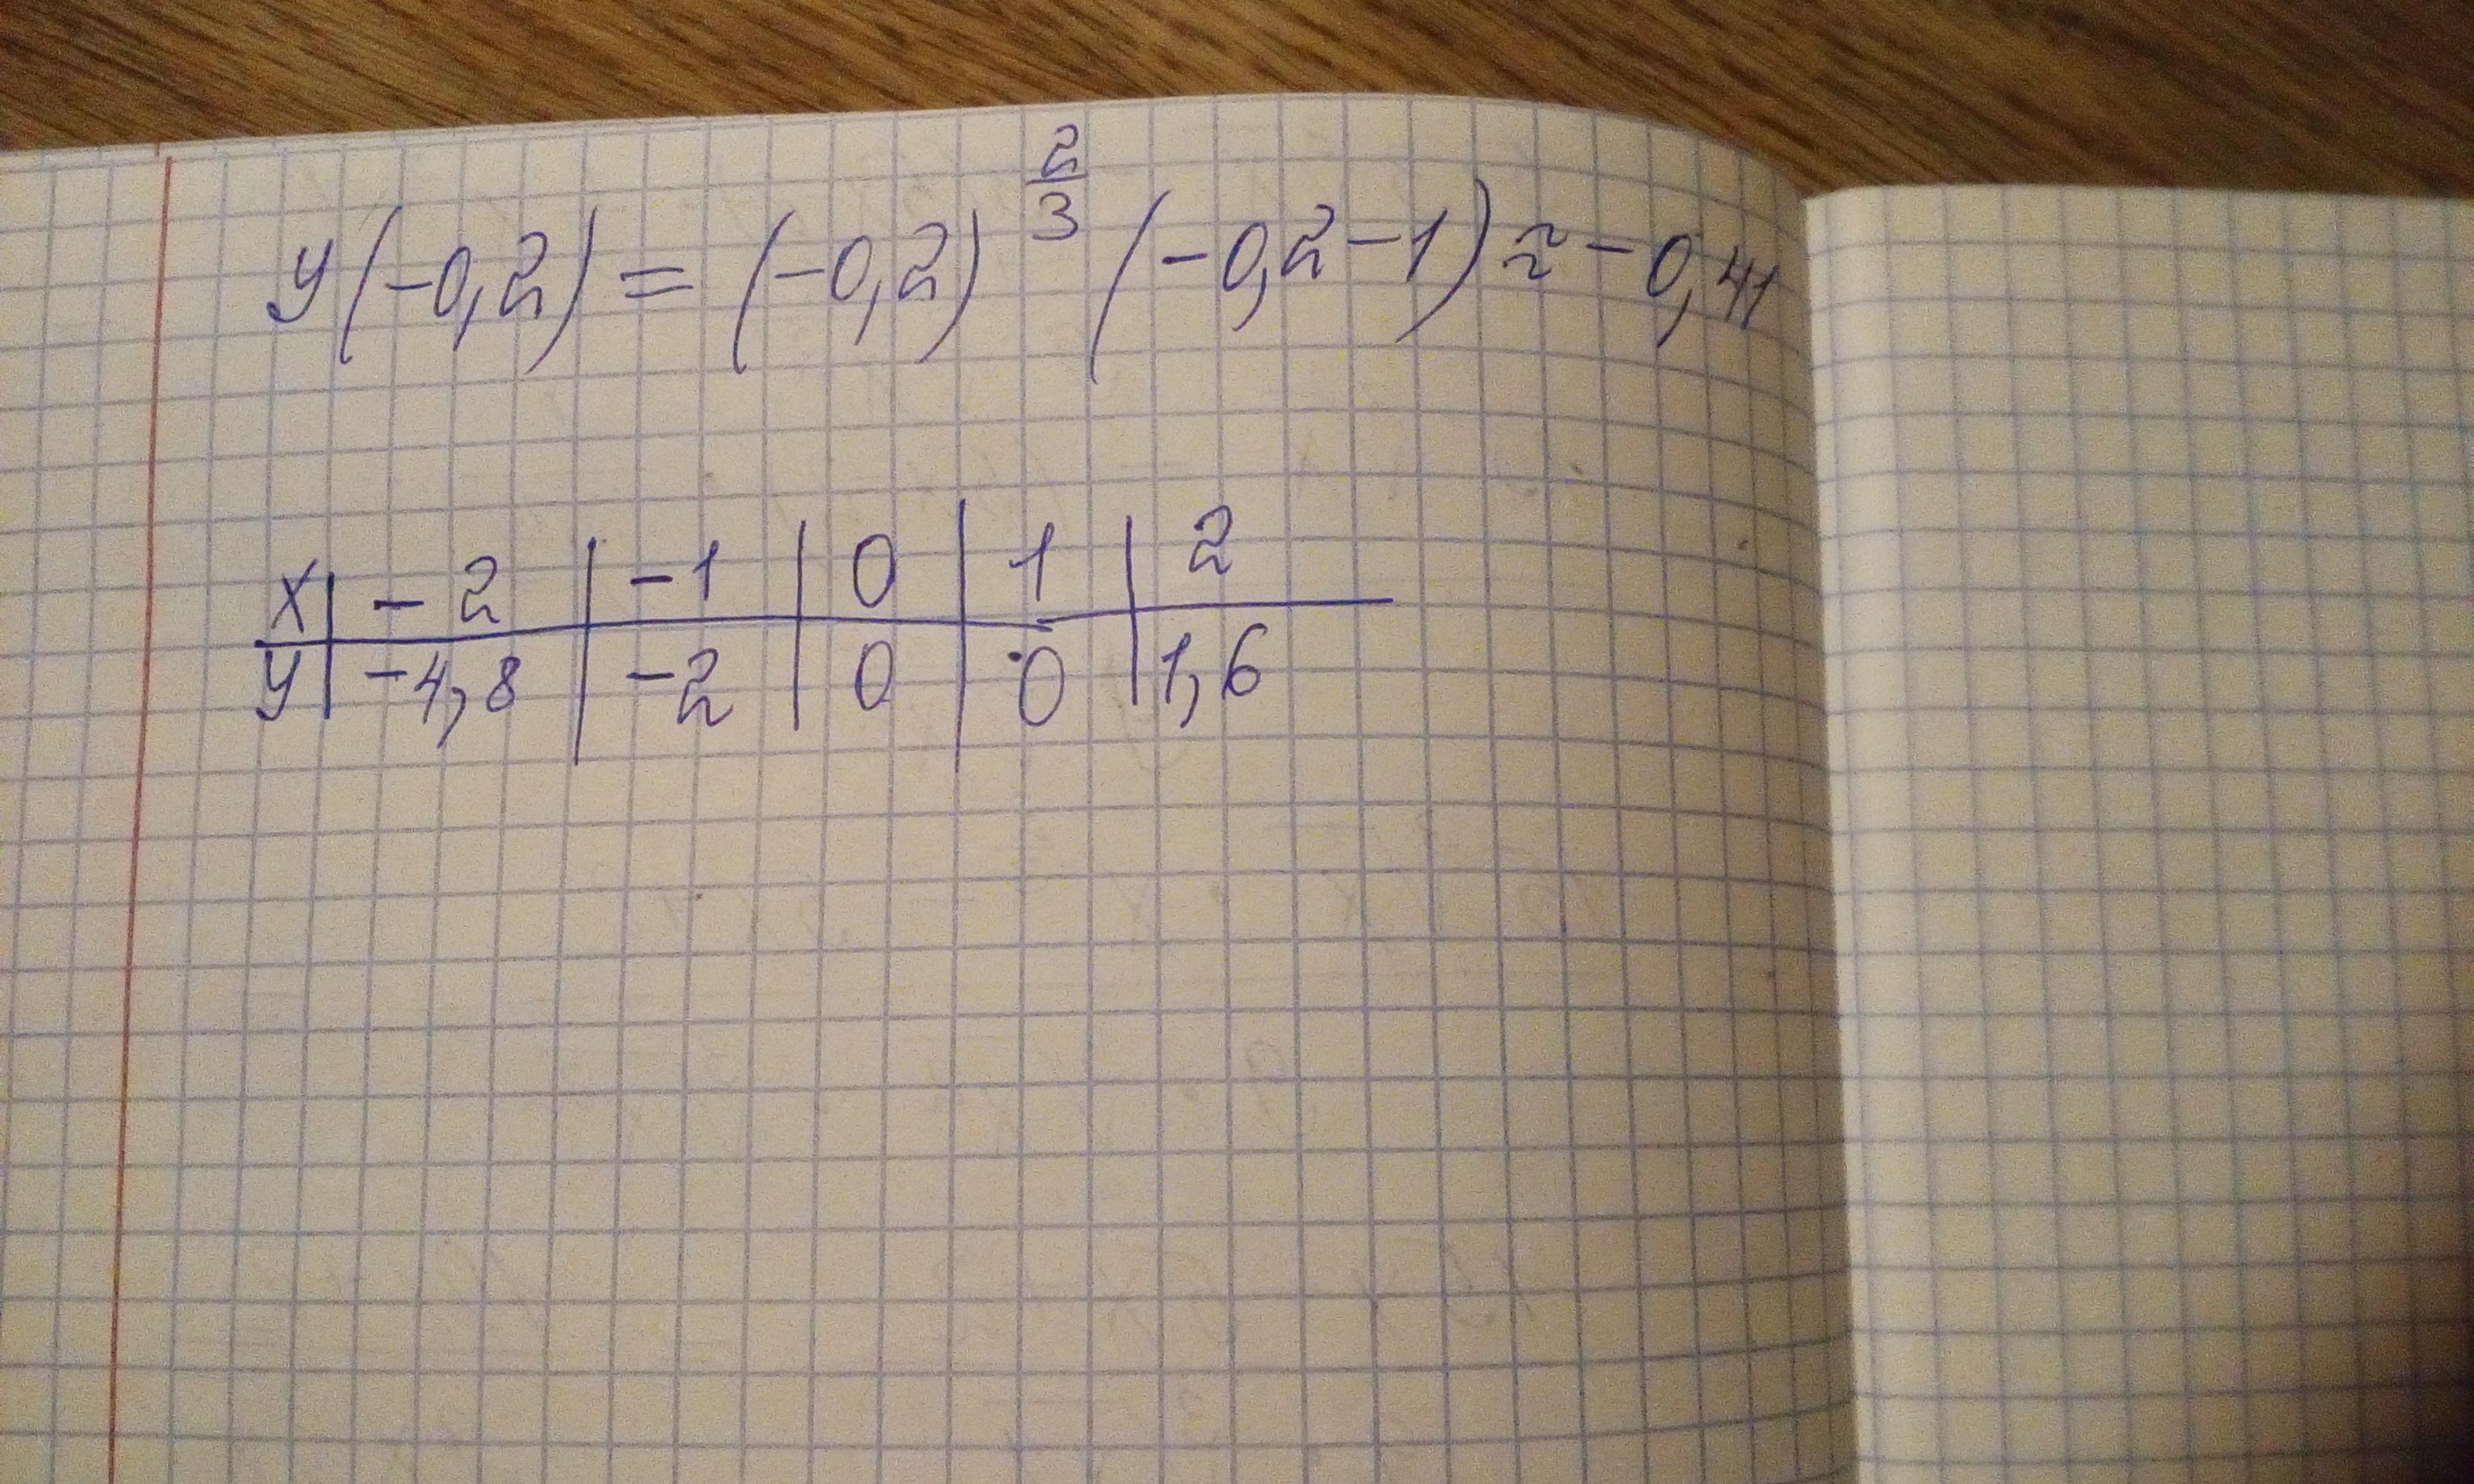 y(-0,2) = (-0,2)^(2/3) (-0,2-1) ≈ -0,41
x | -2 | -1 | 0 | 1 | 2
y | -4,8 | -2 | 0 | 0 | 1,6